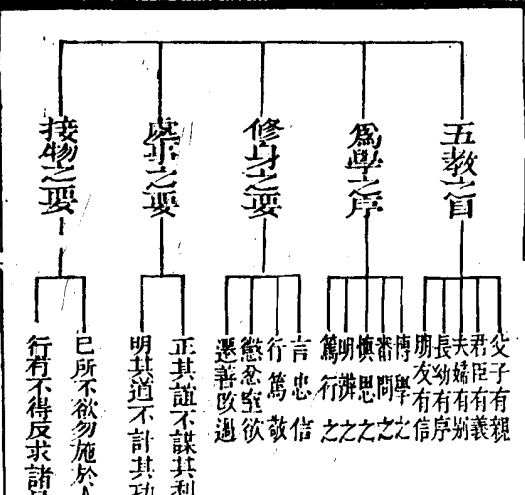 五教之目
父子有親
君臣有義
夫婦有別
長幼有序
朋友有信
爲學之序
博學之
審問之
愼思之
明辨之
篤行之
修身之要
言忠信
行篤敬
懲忿窒欲
遷善改過
處事之要
正其誼不謀其利
明其道不計其功
接物之要
己所不欲勿施於人
行有不得反求諸己